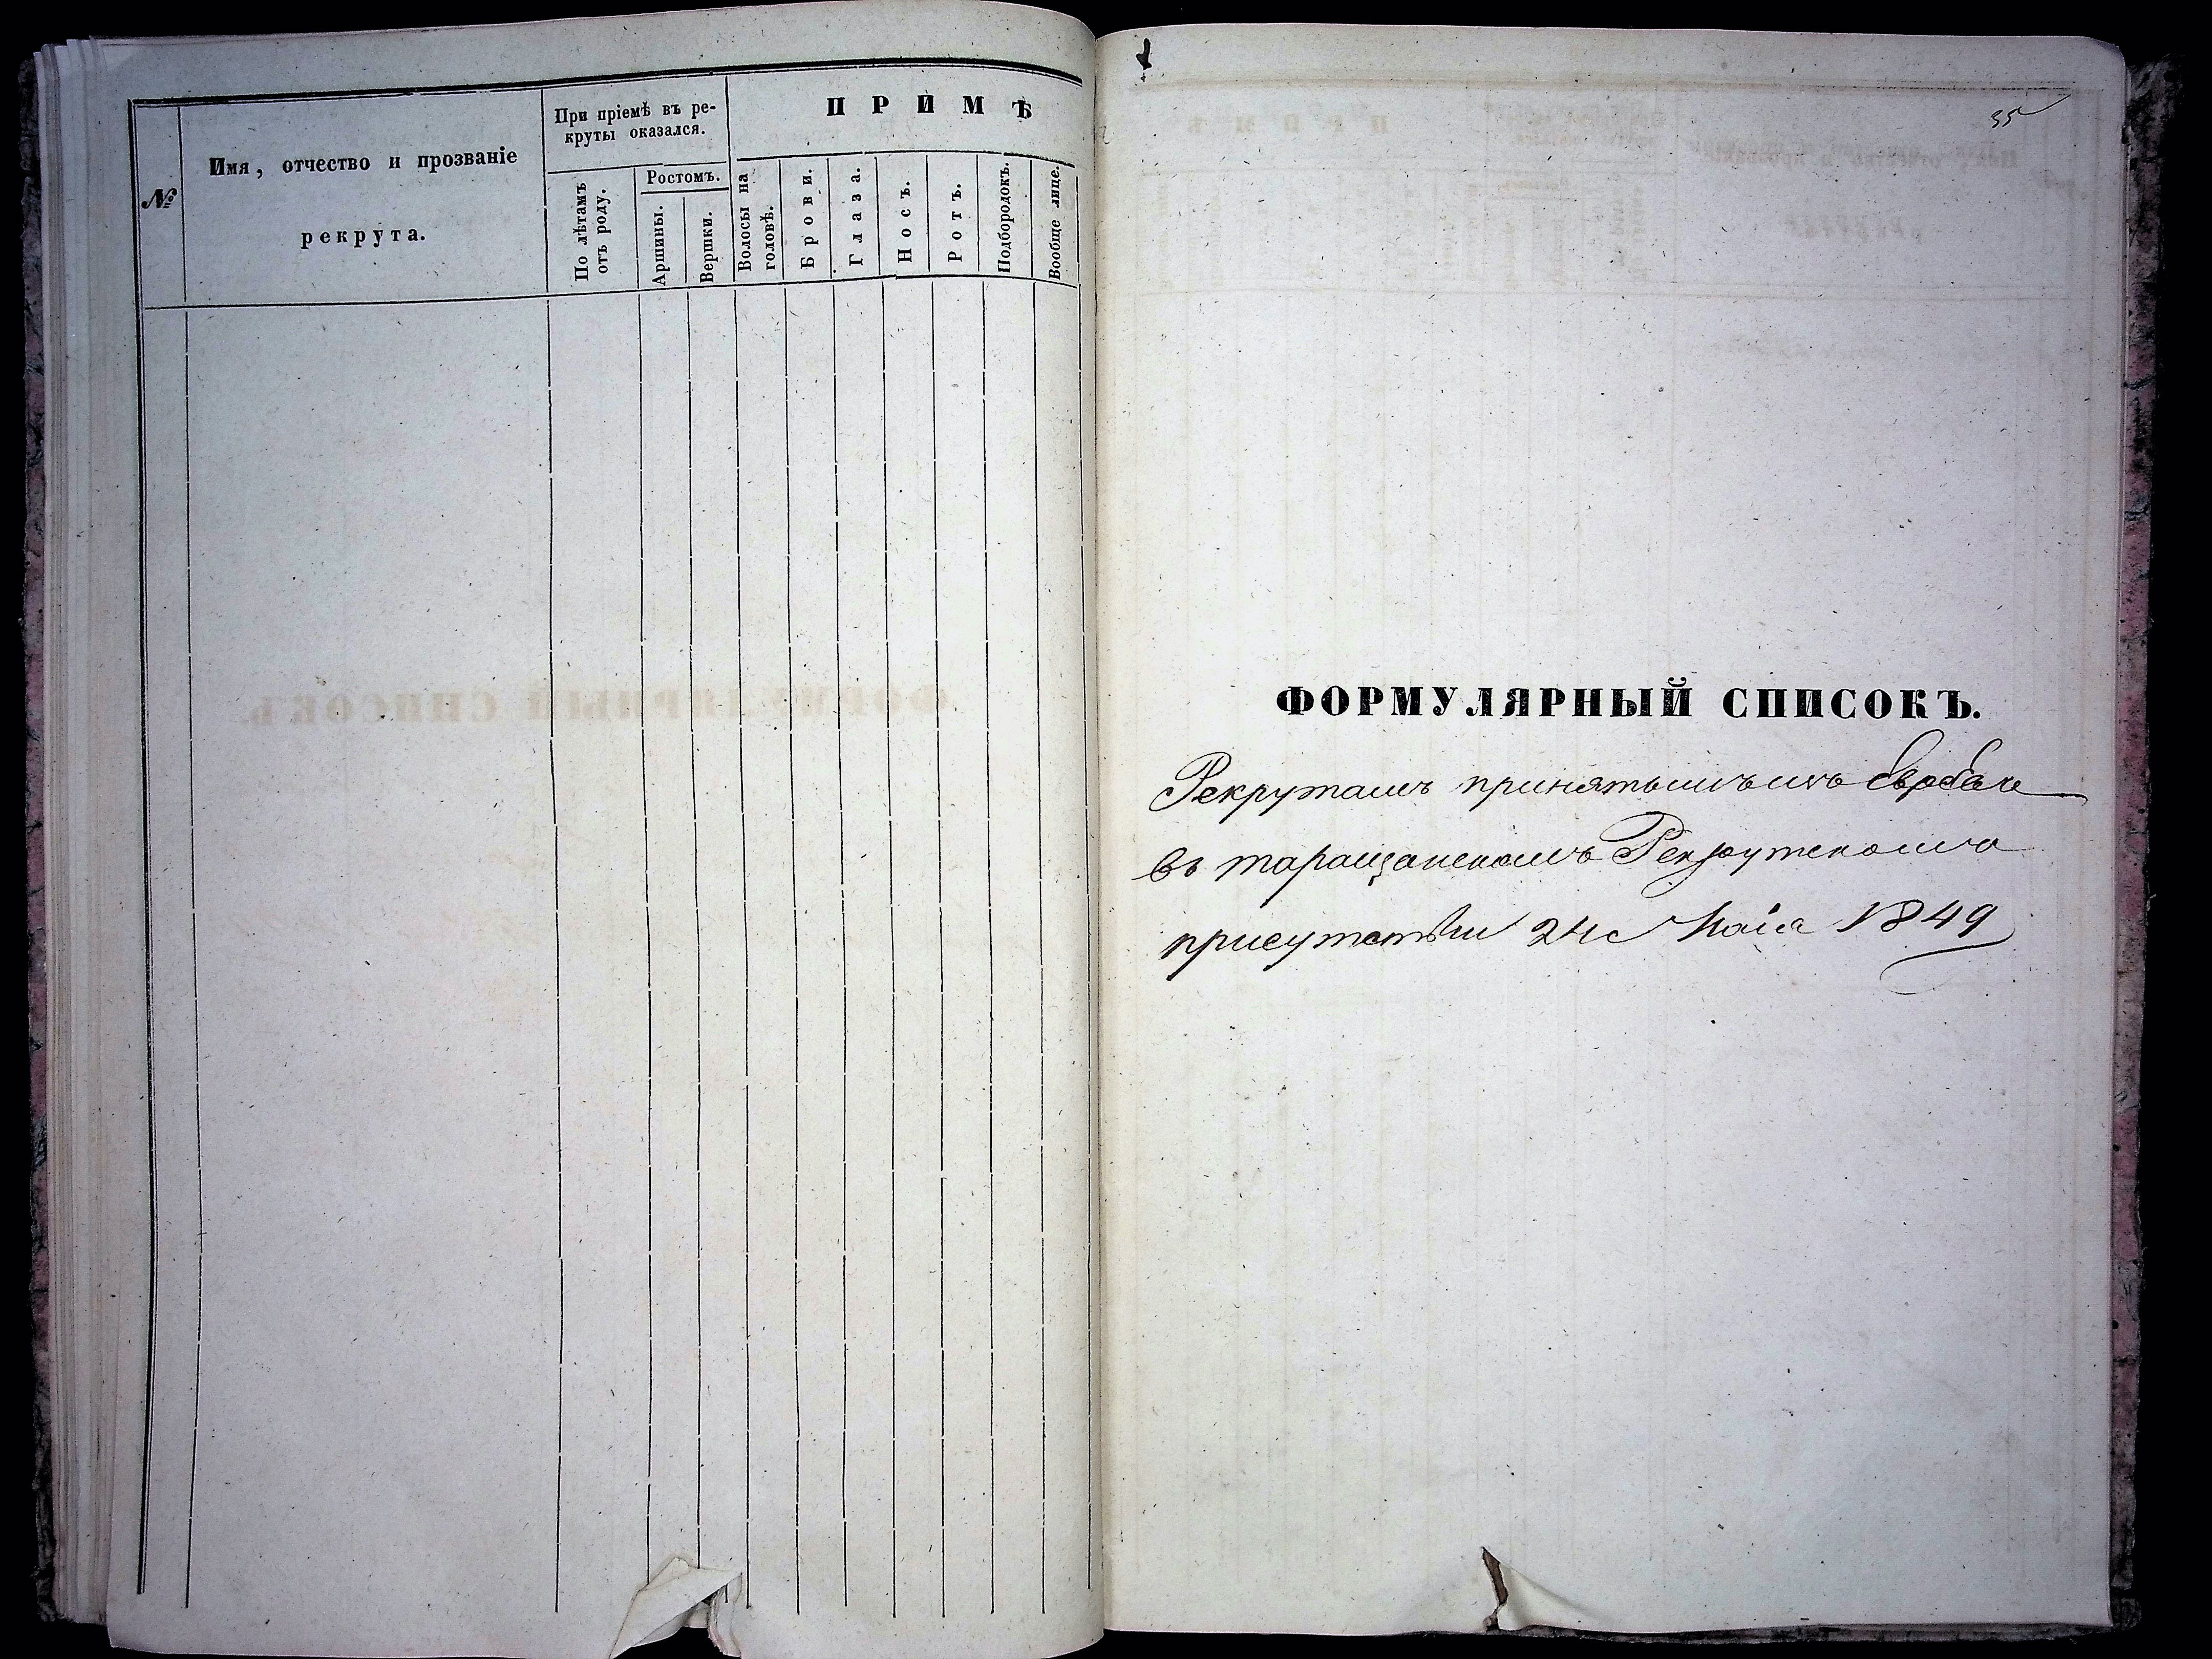 №
Имя, отчество и прозваніе
рекрута.
При пріемѣ въ ре-
круты оказался.
По лѣтамъ
отъ роду.
Ростомъ.
Аршины.
Вершки.
ПРИМѢ
Волосы на
головѣ.
Брови.
Глаза.
Носъ.
Ротъ.
Подбородокъ.
Вообще лице.
35
ФОРМУЛЯРНЫЙ СПИСОКЪ.
Рекрутамъ принятымъ изъ
въ таращанскомъ Рекрутскомъ
присутствіи 24 Маія 1849